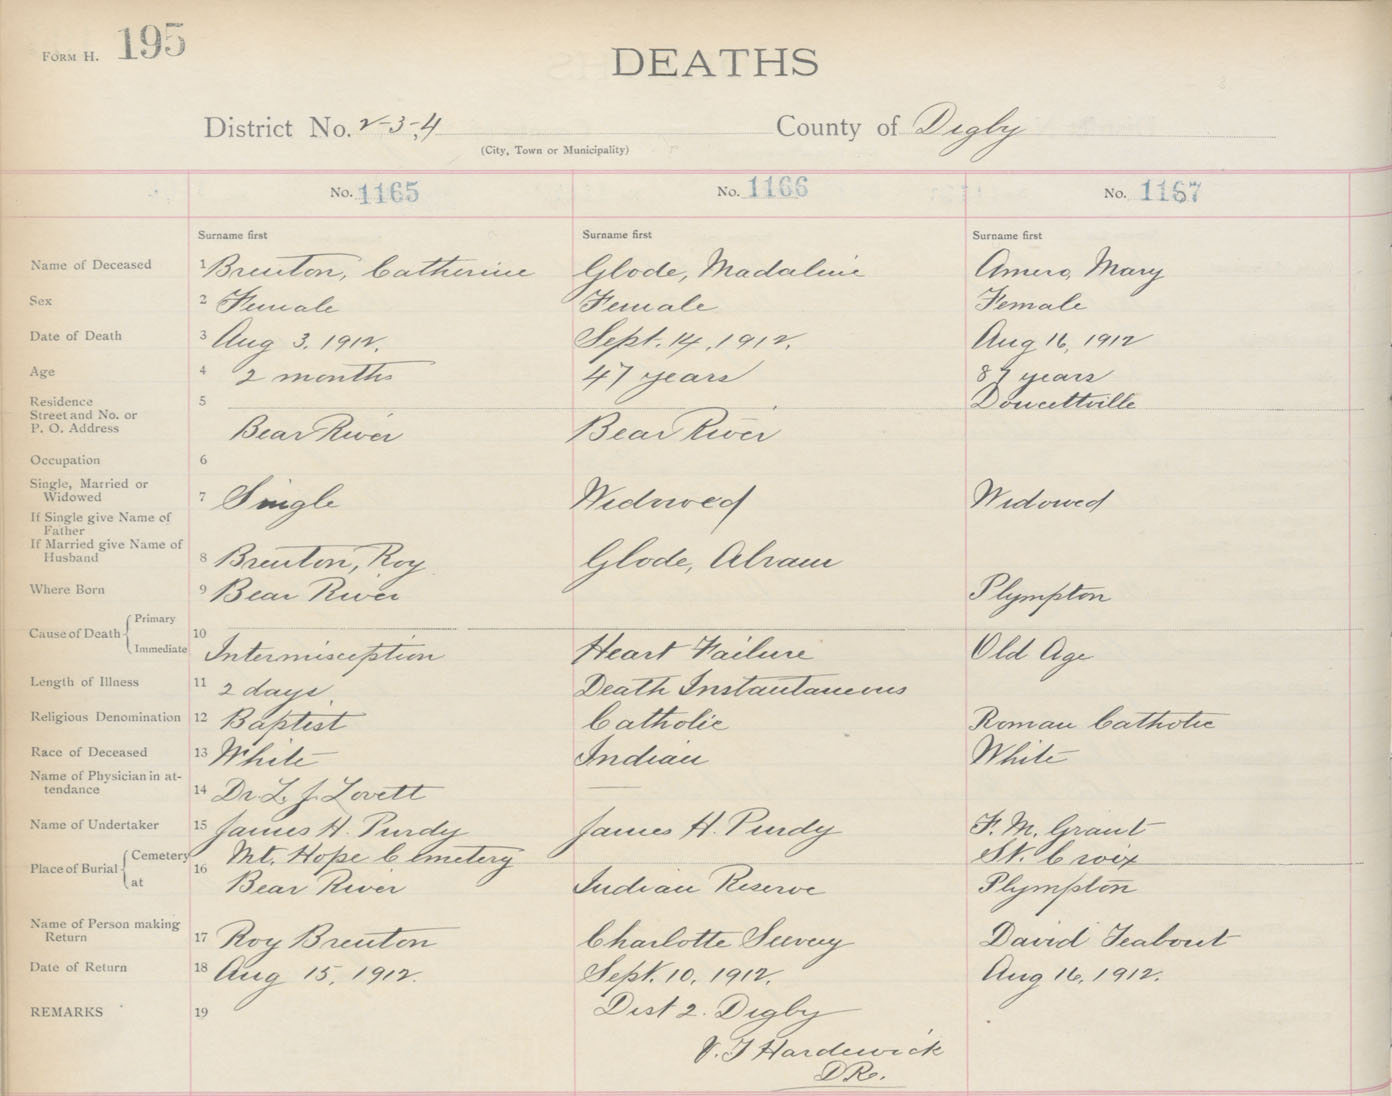 FORM H. 195
DEATHS
District No. 2-3-4 County of Digby
(City, Town or Municipality)
No. 1165 No. 1166 No. 1167
Surname first Surname first Surname first
Name of Deceased 1 Brenton, Catherine Glode, Madaline Amero, Mary
Sex 2 Female Female Female
Date of Death 3 Aug 3, 1912. Sept. 14, 1912. Aug 16, 1912
Age 4 2 months 47 years 87 years
Residence 5 Doucettville
Street and No. or
P. O. Address Bear River Bear River
Occupation 6
Single, Married or
Widowed 7 Single Widowed Widowed
If Single give Name of
Father
If Married give Name of
Husband 8 Brenton, Roy Glode, Abram
Where Born 9 Bear River Plympton
Cause of Death Primary 10
Immediate Intermisception Heart Failure Old Age
Length of Illness 11 2 days Death Instantaneous
Religious Denomination 12 Baptist Catholic Roman Catholic
Race of Deceased 13 White Indian White
Name of Physician in at-
tendance 14 Dr. L. J. Lovett —
Name of Undertaker 15 James H. Purdy James H. Purdy F. M. Grant
Place of Burial Cemetery 16 Mt. Hope Cemetery St. Croix
at Bear River Indian Reserve Plympton
Name of Person making
Return 17 Roy Brenton Charlotte David
Date of Return 18 Aug 15, 1912. Sept. 10, 1912. Aug 16, 1912.
REMARKS 19 Dist 2. Digby
V. T. Hardwick
D.R.